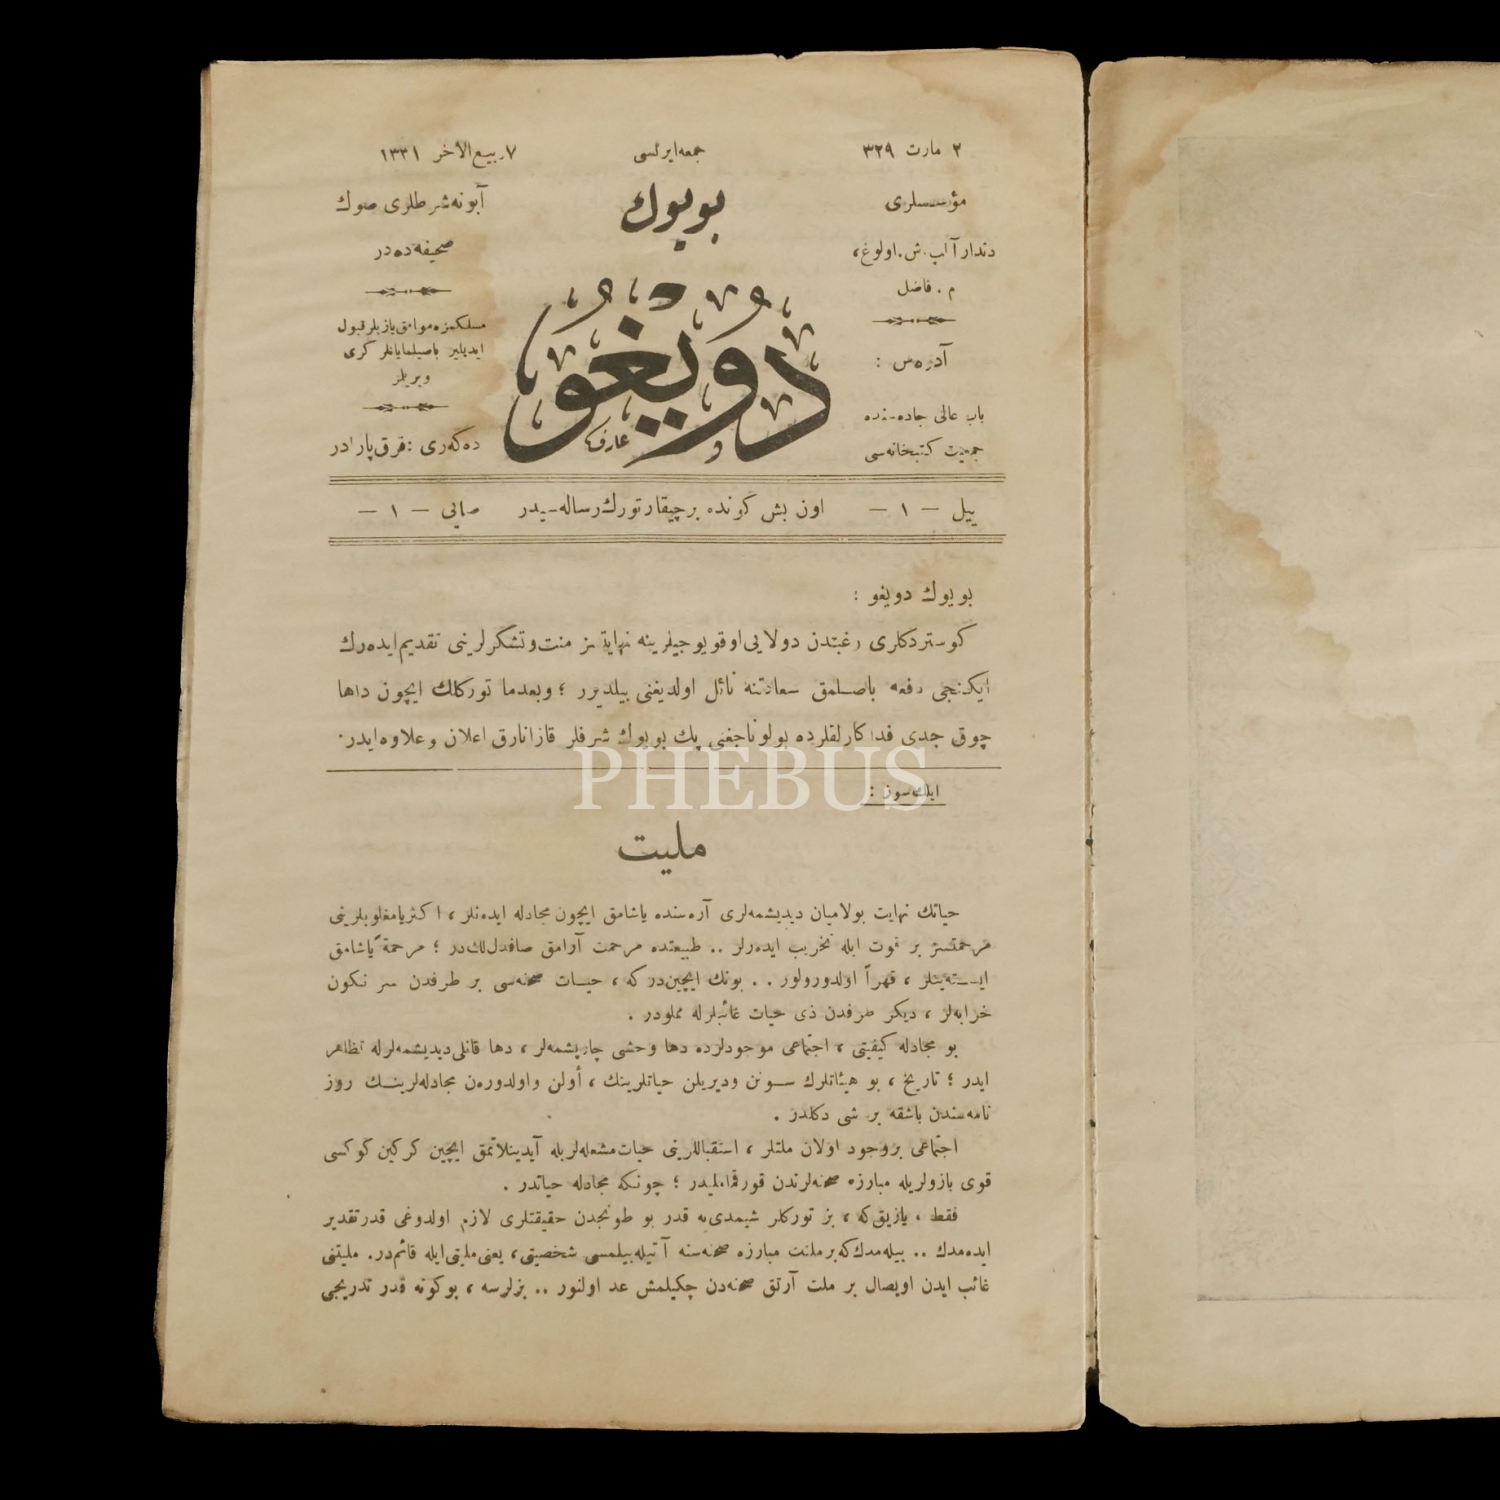 ٢ مارت ٣٢٩
جمعه‌ایرتسی
٧ ربیع‌الآخر ١٣٣١
مؤسسلری
دندار آلپ. ش. اولوغ،
م. فاضل
آدره‌س :
باب عالی جاده‌سنده
جمعیت کتبخانه‌سی
بویوك
دویغو
عارف
آبونه شرطلری صوك
صحیفه‌ده‌در
مسلکمزه موافق یازیلر قبول
ایدیلیر باصیلمایانلر کری
ویریلمز
ده‌کری : قرق پارادر
ییل — ١ —
اون بش کونده بر چیقار تورك رساله‌سیدر
صایی — ١ —
بویوك دویغو :
کوستردکلری رغبتدن دولایی اوقویوجیلرینه نهایتسز منت و تشکرلرینی تقدیم ایده‌رك
ایکنجی دفعه باصلمق سعادتنه نائل اولدیغنی بیلدیرر ؛ وبعدما تورکلك ایچون داها
چوق جدی فداکارلقلرده بولوناجغنی پك بویوك شرفلر قازانارق اعلان و علاوه ایدر.
PHEBUS
ایلك سوز :
ملیت
حیاتك نهایت بولامیان دیدیشمه‌لری آره‌سنده یاشامق ایچون مجادله ایده‌نلر ، اکثریا مغلوبلرینی
مرحمتسز بر قوت ایله تخریب ایده‌رلر .. طبیعتده مرحمت آرامق صافدللك‌در ؛ مرحمةً یاشامق
ایسته‌ینلر ، قهراً اولدورولور .. بونك ایچین‌درکه ، حیات صحنه‌سی بر طرفدن سر نکون
خرابه‌لر ، دیکر طرفدن ذی حیات غائبلرله مملودر .
بو مجادله کیفیتی ، اجتماعی موجودلرده دها وحشی چارپیشمه‌لر ، دها قانلی دیدیشمه‌لرله تظاهر
ایدر ؛ تاریخ ، بو هیئاتلرك سونن ودیریلن حیاتلرینك ، أولن واولدوره‌ن مجادله‌لرینك روز
نامه‌سندن باشقه بر شی دکلدر .
اجتماعی بروجود اولان ملتلر ، استقباللرینی حیات مشعله‌لریله آیدینلاتمق ایچین کرکین کوکسی
قوی بازولریله مبارزه صحنه‌لرندن قورقماملیدر ؛ چونکه مجادله حیاتدر .
فقط ، یازیق‌که ، بز تورکلر شیمدی‌یه قدر بو طونجدن حقیقتلری لازم اولدوغی قدر تقدیر
ایده‌مدك .. بیله‌مدك که بر ملت مبارزه صحنه‌سنه آتیله‌بیلمسی شخصیتی، یعنی ملیتی ایله قائم‌در. ملیتنی
غائب ایدن اویصال بر ملت آرتق صحنه‌دن چکیلمش عد اولنور .. بزلرسه ، بوکونه قدر تدریجی